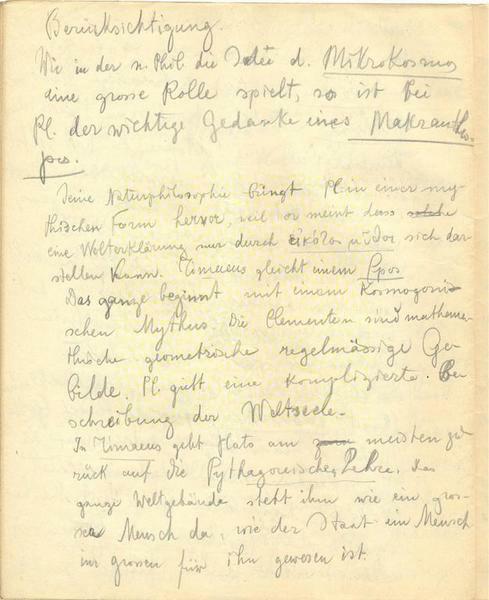 Berücksichtigung.
Wie in der n. Phil. die Idee d. Mikrokosmos
eine grosse Rolle spielt, so ist bei
Pl. der wichtige Gedanke eines Makranthro-
pos.
Seine Naturphilosophie bringt Pl. in einer my-
thischen Form hervor, weil er meint dass solche
eine Welterklärung nur durch εἰκότος μῦθος sich dar-
stellen kann. Timaeus gleicht einem Epos
Das ganze beginnt mit einem Kosmogoni-
schen Mythus. Die Elementen sind mathema-
thische geometrische regelmässige Ge-
bilde. Pl. gibt eine komplizierte Be-
schreibung der Weltseele.
In Timaeus geht Plato am meisten zu-
rück auf die Pythagoreische Lehre. Das
ganze Weltgebäude steht ihm wie ein gros-
ser Mensch da, wie der Staat ein Mensch
im grossen für ihn gewesen ist.